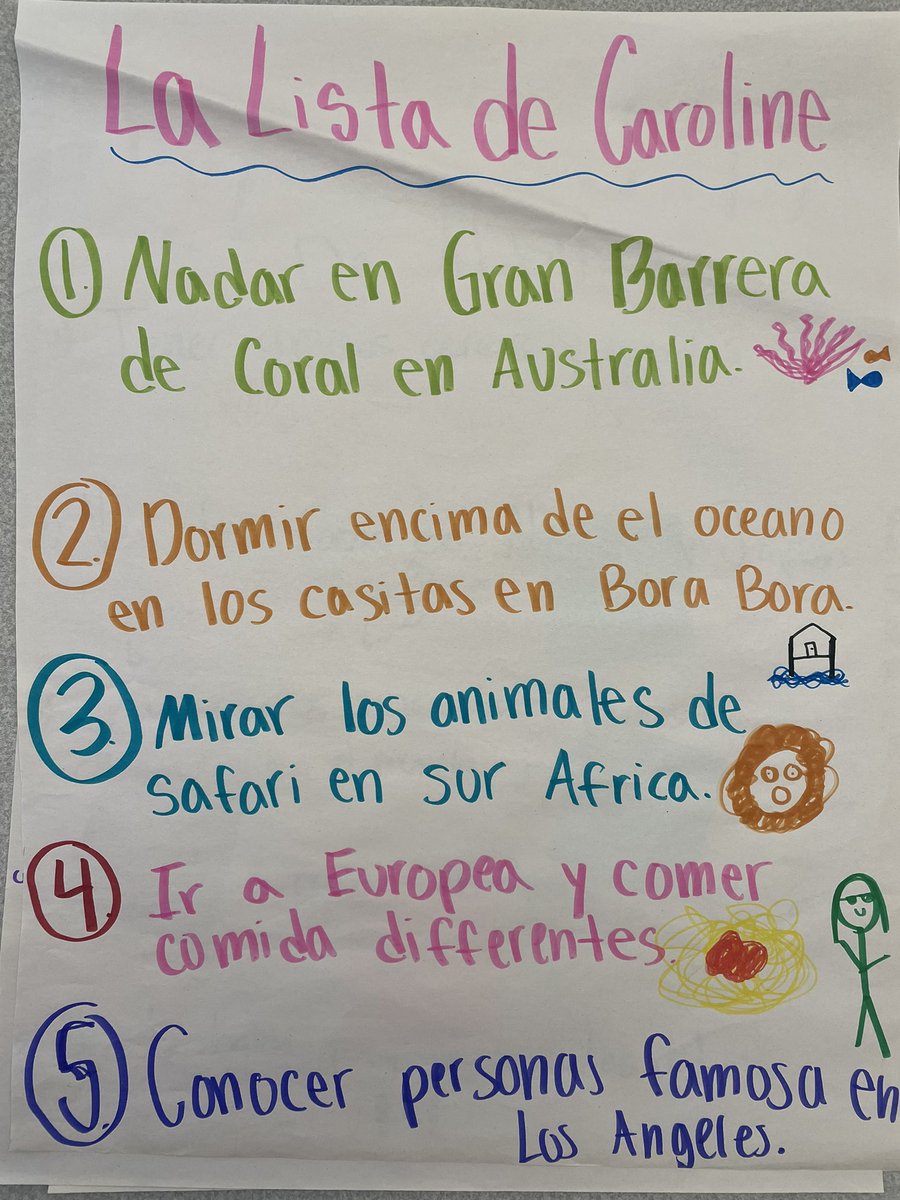 La Lista de Caroline
1. Nadar en Gran Barrera
de Coral en Australia.
2. Dormir encima de el oceano
en los casitas en Bora Bora.
3. Mirar los animales de
safari en sur Africa.
4. Ir a Europea y comer
comida differentes.
5. Conocer personas famosa en
Los Angeles.